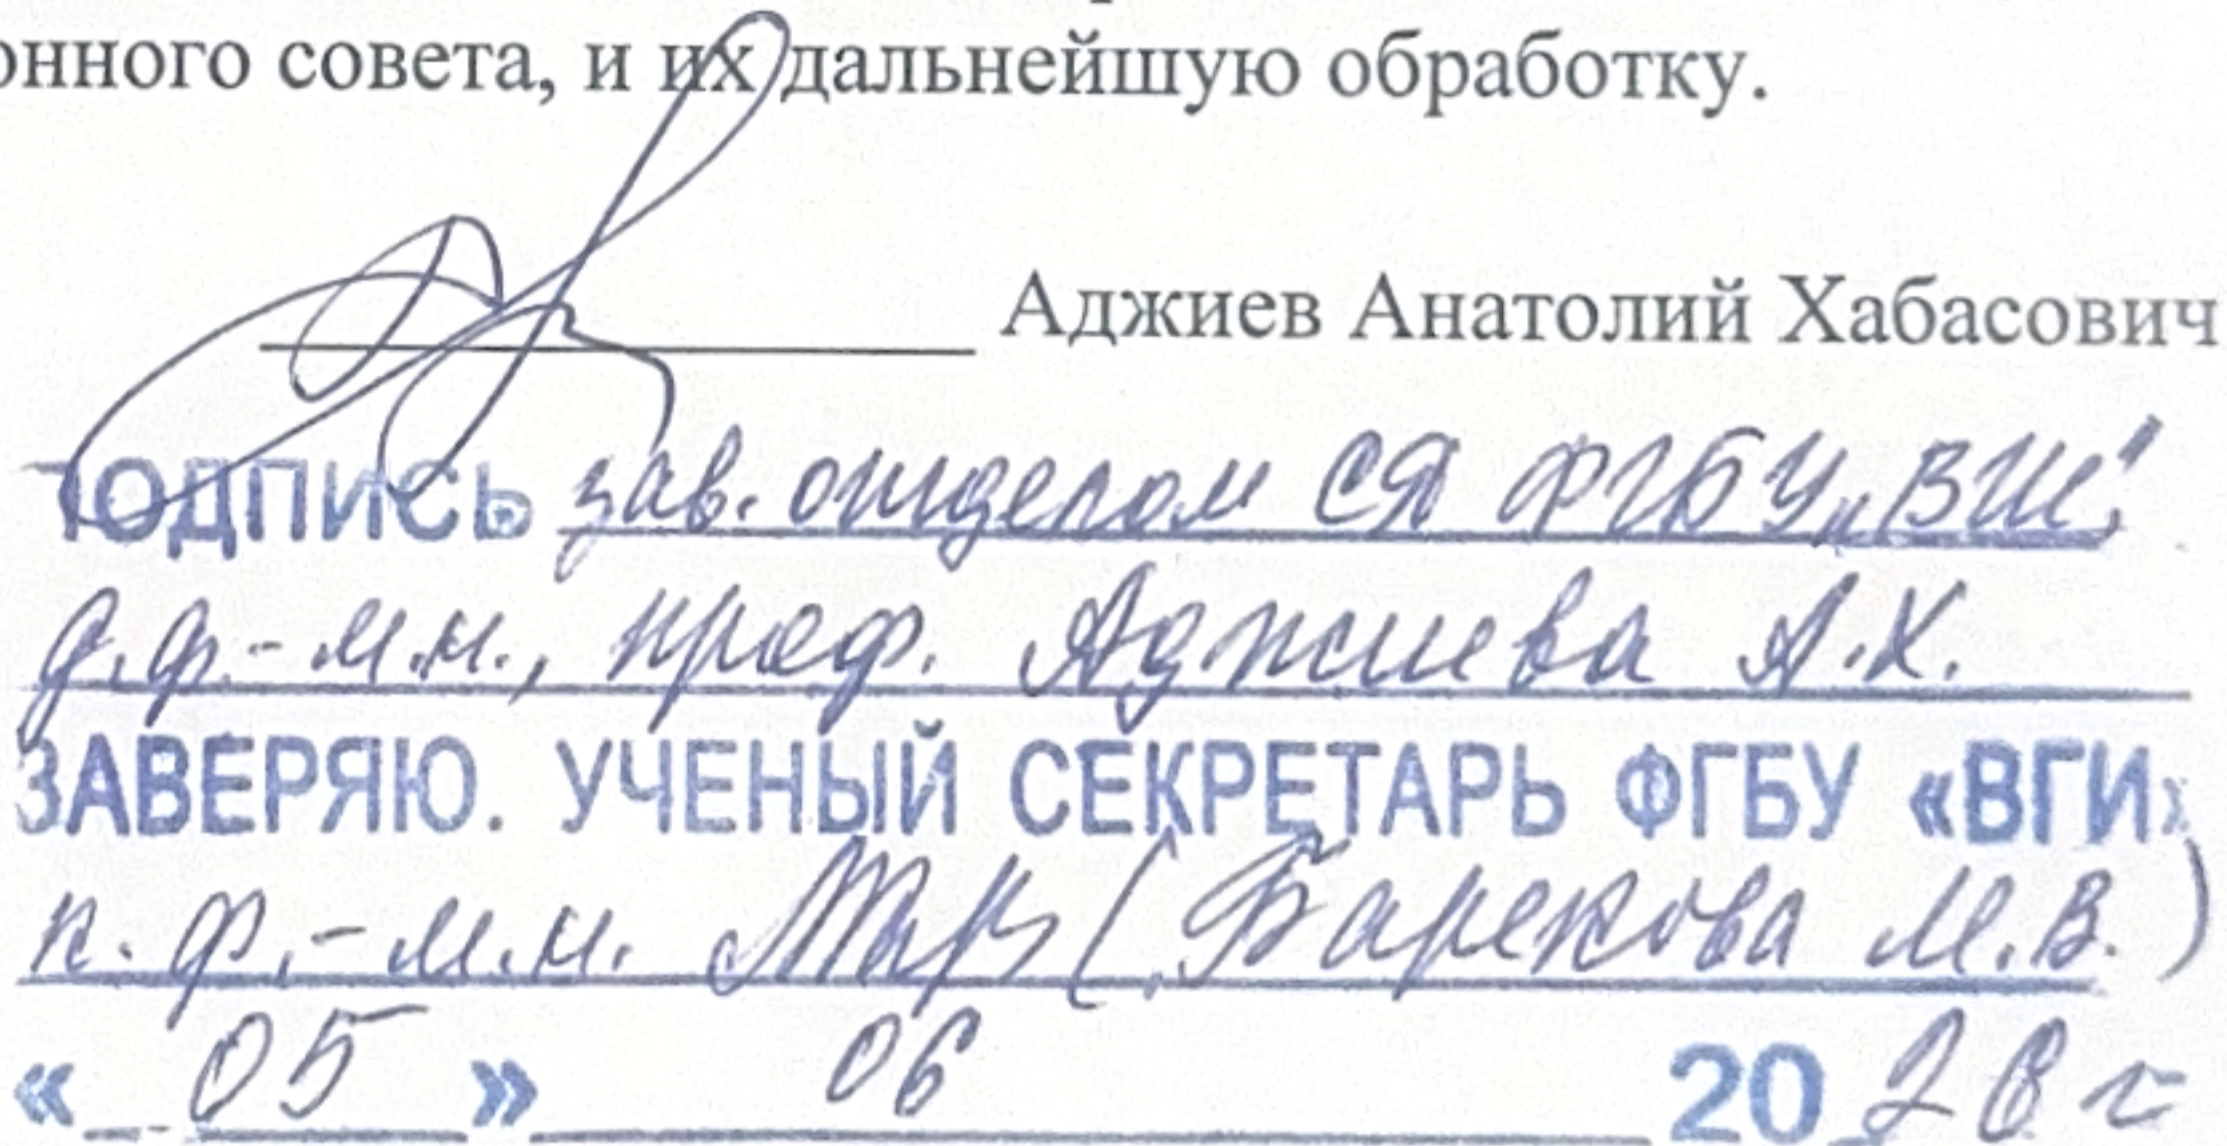 онного совета, и их дальнейшую обработку.
Аджиев Анатолий Хабасович
ПОДПИСЬ зав. отделом СЯ ФГБУ "ВГИ",
д.ф.-м.н., проф. Аджиева А.Х.
ЗАВЕРЯЮ. УЧЕНЫЙ СЕКРЕТАРЬ ФГБУ «ВГИ»
к.ф.-м.н. (Барекова М.В.)
« 05 » 06 2020 г